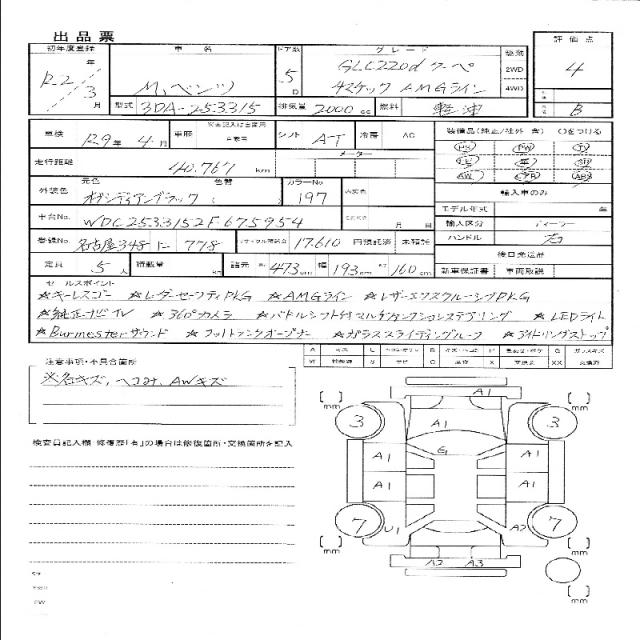 出品票
初年度登録 車名 ドア数 グレード 駆動 評価点
R2年 3月 M.ベンツ 5D GLC220d クーペ 2WD 4
4マチック AMGライン 4WD
型式 3DA-253315 排気量 2000cc 燃料 軽油 B
車検 R9年 4月 車歴 シフト A-T 冷房 AC 装備品(純正/社外 含) ○をつける
走行距離 40,767 km メーター
輸入車のみ
外装色 元色 オブシディアンブラック 色替 カラーNo 197
モデル年式 年
車台No. WDC2533152F675954 月 日 輸入区分 ディーラー
登録No. 名古屋348 に 778 17,610 円預託済 未預託 ハンドル 右
後日発送品
定員 5人 積載量 kg 諸元 長 473cm 幅 193cm 高 160cm 新車保証書 車両取説
セールスポイント
☆キーレスゴー ☆レーダーセーフティPKG ☆AMGライン ☆レザーエクスクルーシブPKG
☆純正ナビTV ☆360°カメラ ☆パドルシフト付マルチファンクションステアリング ☆LEDライト
☆Burmesterサウンド ☆フットトランクオープナー ☆ガラススライディングルーフ ☆アイドリングストップ
注意事項・不具合箇所
※各キズ、ヘコみ、AWキズ
検査員記入欄 修復歴「有」の場合は修復箇所・交換箇所を記入
A1
[ ] mm 3 A1 3 [ ] mm
G1
A1 A1
A1 A1
7 U1 A2 7
[ ] mm A2 A3 [ ] mm